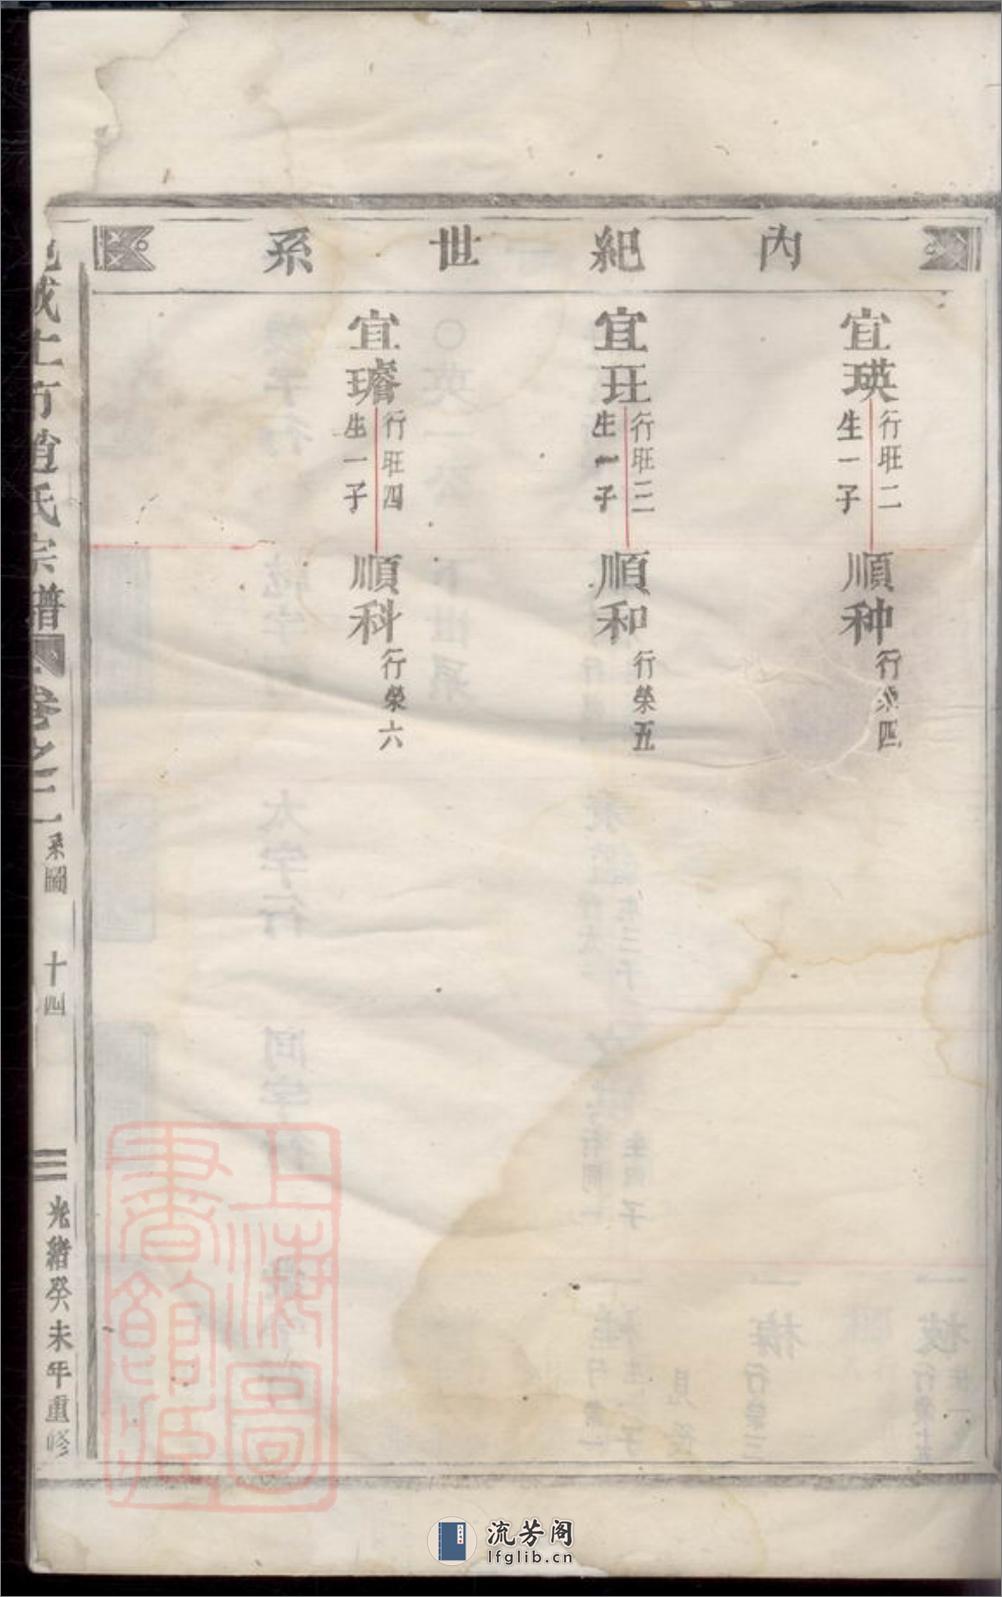 內紀世系
宜瑛
行旺二
生一子
順种
行榮四
宜玨
行旺三
生一子
順和
行榮五
宜璿
行旺四
生一子
順科
行榮六
趙氏宗譜 卷之二 系圖 十四 光緒癸未年重修
上海圖書館藏
流芳阁
lfglib.cn